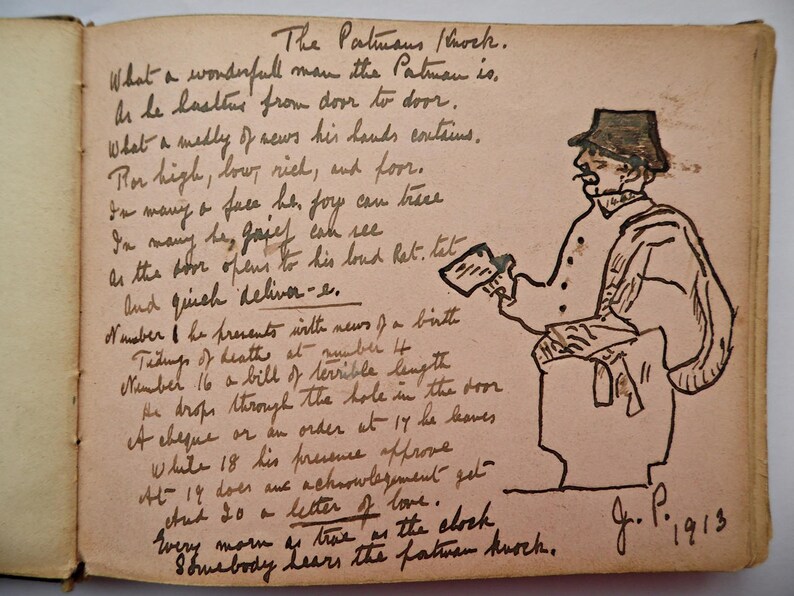 The Postmans Knock.
What a wonderfull man the Postman is.
As he hastens from door to door.
What a medly of news his hands contains.
For high, low, rich, and poor.
In many a face he, joy can trace
In many he, grief can see
As the door opens to his loud Rat. tat
And quick deliver-e.
Number 1 he presents with news of a birth
Tidings of death at number 4
Number 16 a bill of terrible length
He drops through the hole in the door
A cheque or an order at 17 he leaves
While 18 his presence approve
At 19 does an acknowlegement get
And 20 a letter of love.
Every morn as true as the clock
Somebody hears the postman knock.
J. P. 1913